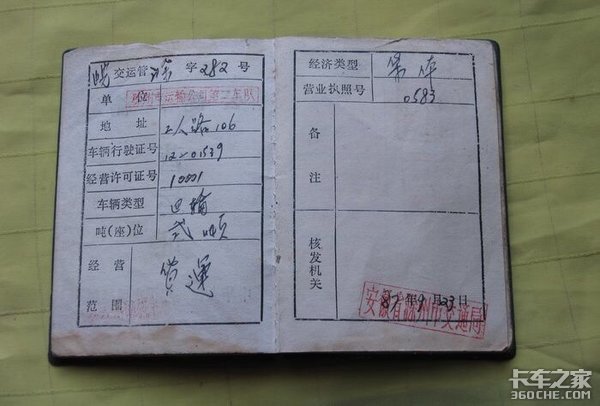 皖交运管滁字282号
单位 滁州市运输公司第二车队
地址 工人路106
车辆行驶证号 12-01539
经营许可证号 10001
车辆类型 运输
吨(座)位 弍吨
经营范围 货运
经济类型 集体
营业执照号 0583
备注
核发机关
87年9月23日
安徽省滁州市交通局
卡车之家
360CHE.COM